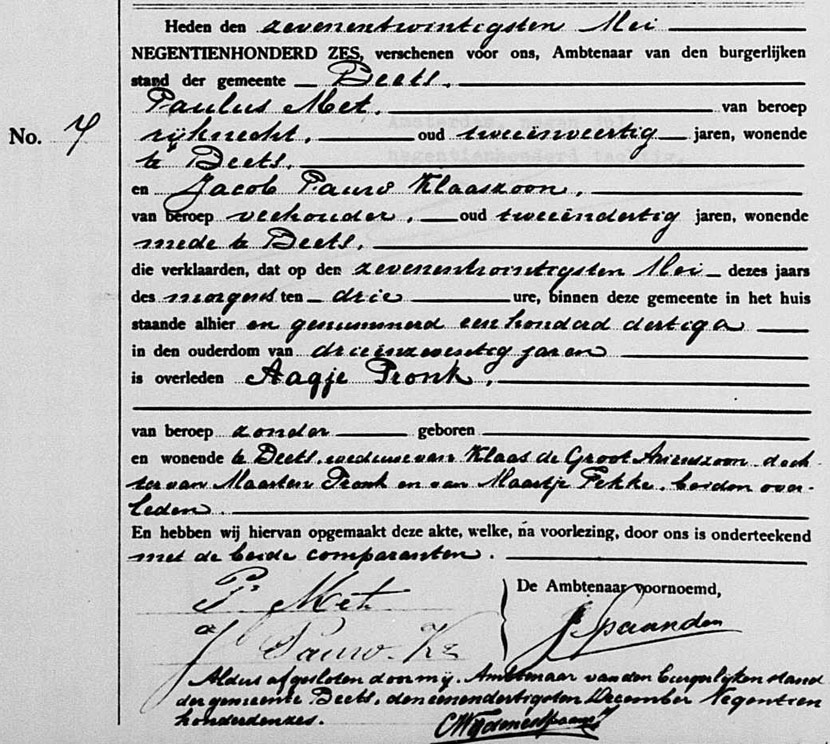 Heden den zevenentwintigsten Mei
NEGENTIENHONDERD ZES, verschenen voor ons, Ambtenaar van den burgerlijken
stand der gemeente Beets.
Paulus Met. van beroep
No. 7 rijknecht, oud tweeënveertig jaren, wonende
te Beets,
en Jacob Pauw Klaaszoon,
van beroep veehouder, oud tweeëndertig jaren, wonende
mede te Beets,
die verklaarden, dat op den zevenentwintigsten Mei dezes jaars
des morgens ten drie ure, binnen deze gemeente in het huis
staande alhier en genummerd een honderd dertig a
in den ouderdom van drieënzeventig jaren
is overleden Aagje Pronk,
van beroep zonder geboren
en wonende te Beets, weduwe van Klaas de Groot Ariszoon, doch-
ter van Maarten Pronk en van Maartje Fekke, beiden over-
leden.
En hebben wij hiervan opgemaakt deze akte, welke, na voorlezing, door ons is onderteekend
met de beide comparanten.
De Ambtenaar voornoemd,
P. Met
J Spaanden
J Pauw. Kz
Aldus afgesloten door mij, Ambtenaar van den burgerlijken stand
der gemeente Beets, den eenendertigsten December Negentien
honderdenzes.